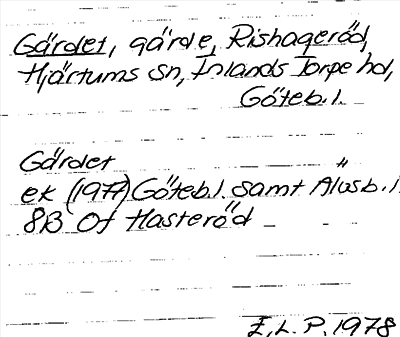 Gärdet, gärde, Rishageröd,
Hjärtums sn, Inlands Torpe hd,
Göteb.l.
Gärdet "
ek (1977) Göteb.l. samt Älvsb.l
8B 0f Hasteröd
E.L.P. 1978